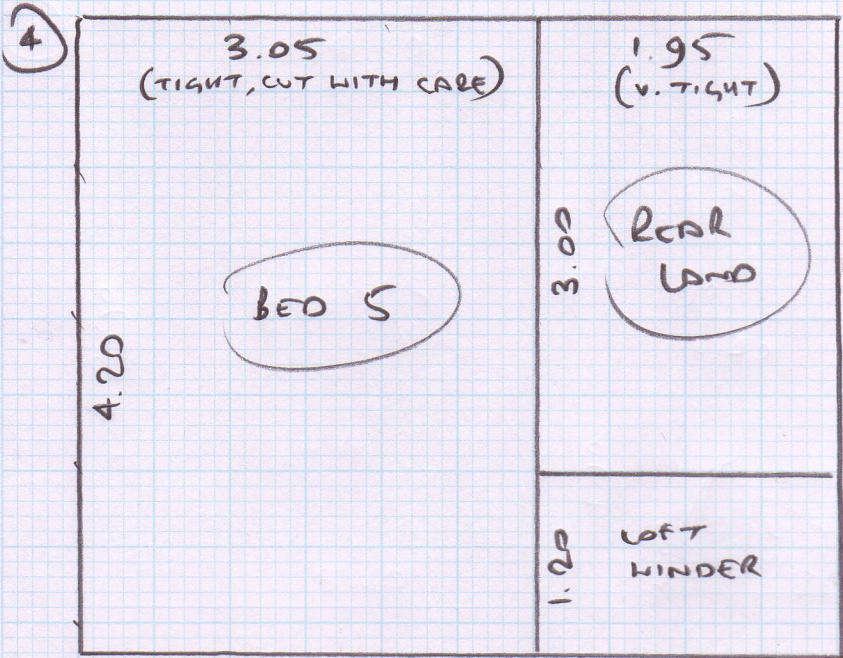 4
3.05
(TIGHT, CUT WITH CARE)
1.95
(V. TIGHT)
4.20
BED 5
3.00
REAR
LAND
1.20
LOFT
WINDER